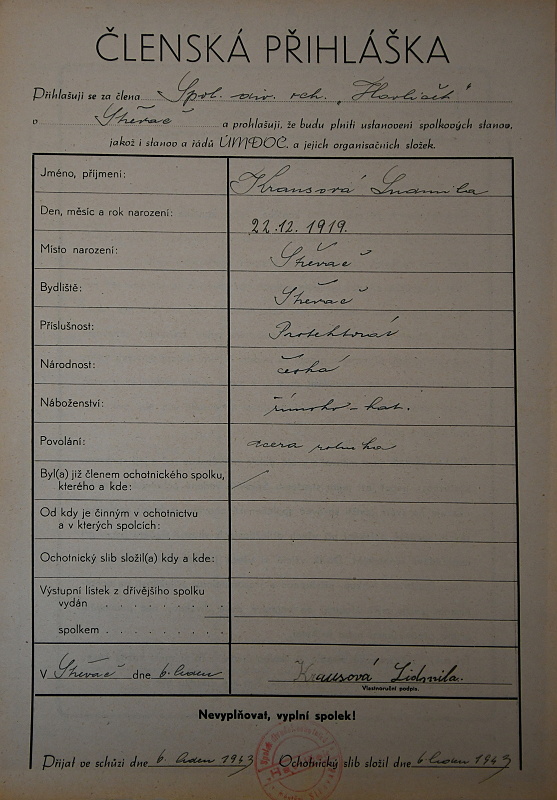 ČLENSKÁ PŘIHLÁŠKA
Přihlašuji se za člena Spol. div. och. „Havlíček“
v Střevač a prohlašuji, že budu plniti ustanovení spolkových stanov,
jakož i stanov a řádů ÚMDOČ. a jejich organisačních složek.
Jméno, příjmení: Krausová Ludmila
Den, měsíc a rok narození: 22.12.1919.
Místo narození: Střevač
Bydliště: Střevač
Příslušnost: Protektorát
Národnost: česká
Náboženství: římsko-kat.
Povolání: dcera rolníka
Byl(a) již členem ochotnického spolku,
kterého a kde:
Od kdy je činným v ochotnictvu
a v kterých spolcích:
Ochotnický slib složil(a) kdy a kde:
Výstupní lístek z dřívějšího spolku
vydán . . . . . . . . . . .
spolkem . . . . . . . . . .
V Střevač dne 6. leden Krausová Lidmila.
Vlastnoruční podpis.
Nevyplňovat, vyplní spolek!
Přijat ve schůzi dne 6. leden 1943 Ochotnický slib složil dne 6 leden 1943